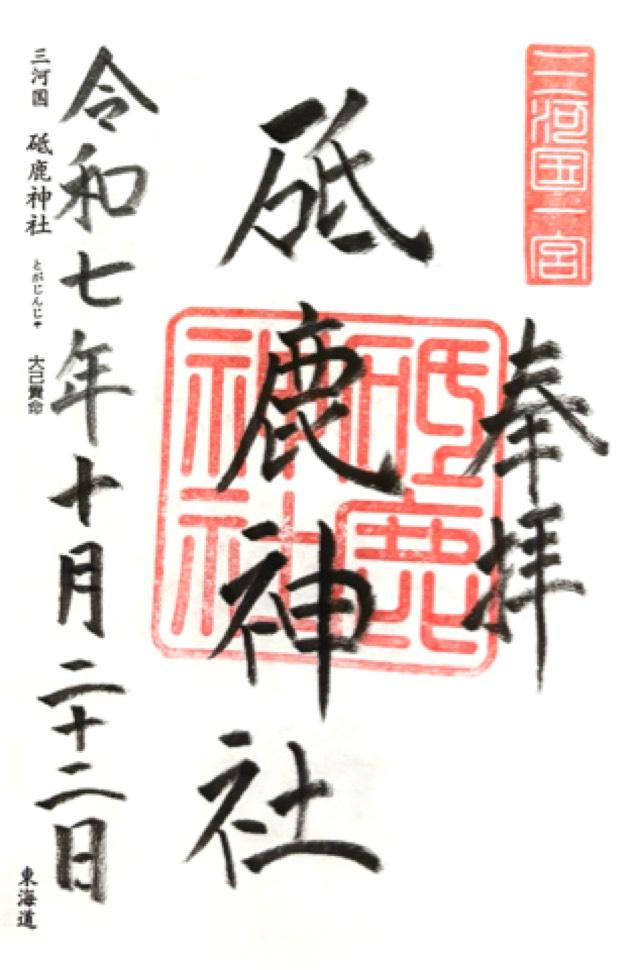 三河国一宮
奉拝
砥鹿神社
砥鹿神社
令和七年十月二十二日
三河国 砥鹿神社 とがじんじゃ 大己貴命
東海道